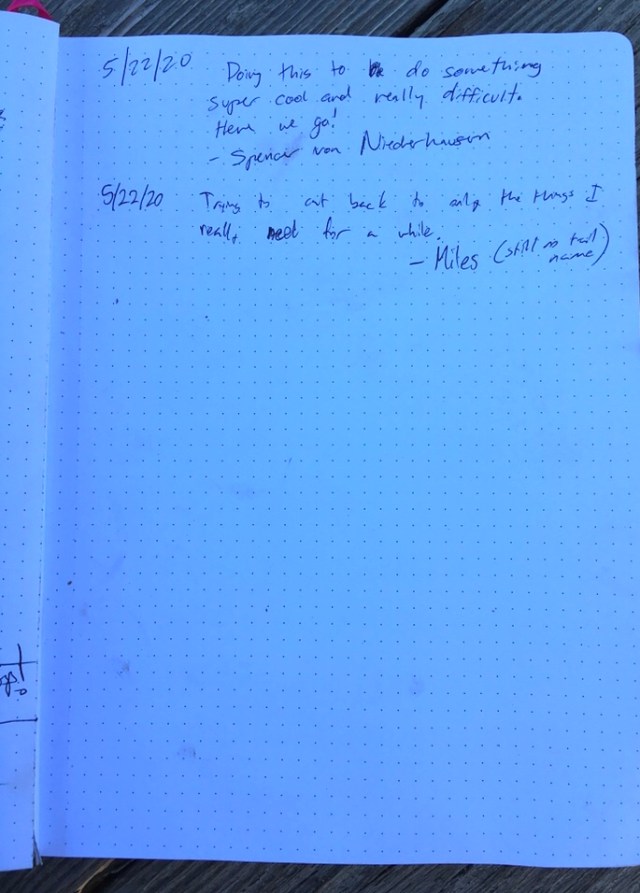 5/22/20 Doing this to do something
super cool and really difficult.
Here we go!
- Spencer von Niederhausern
5/22/20 Trying to cut back to only the things I
really need for a while.
- Miles (still no trail
name)